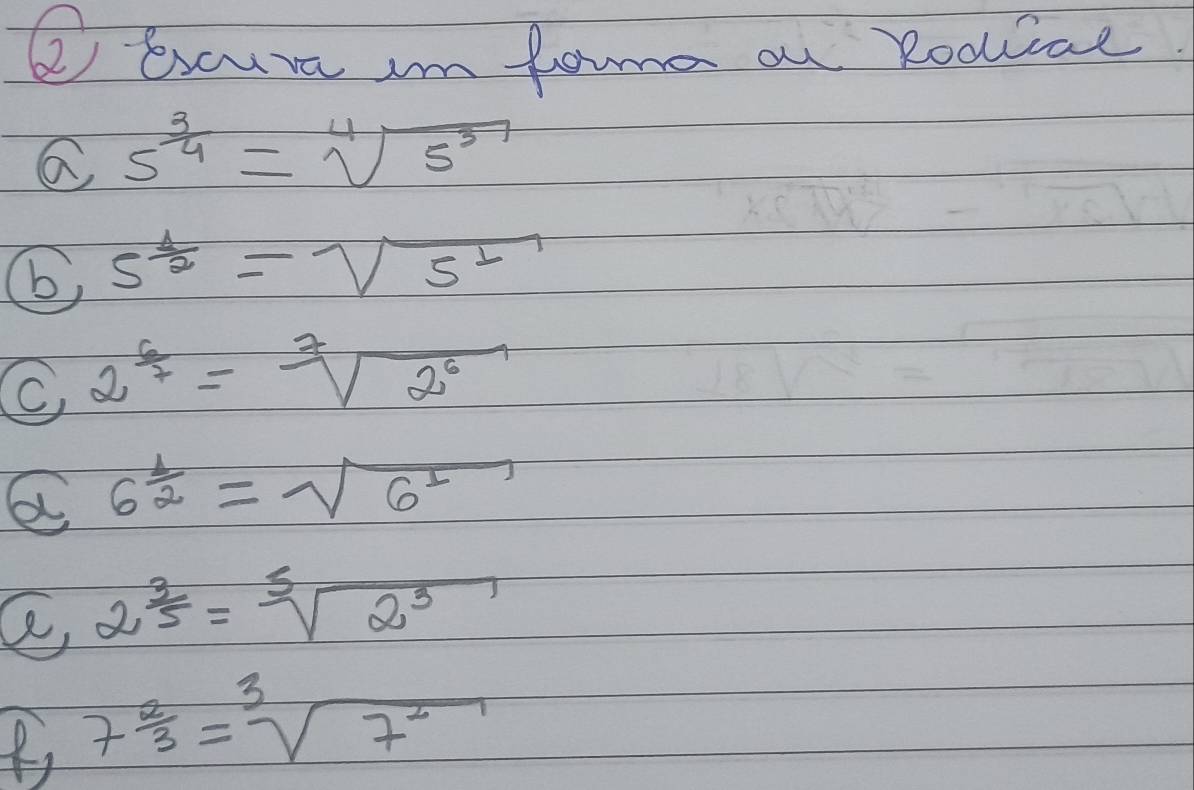 2) Escriva em forma de Rodical.
a) 5^{3/4} = \sqrt[4]{5^3}
b) 5^{1/2} = \sqrt{5^1}
c) 2^{6/7} = \sqrt[7]{2^6}
d) 6^{1/2} = \sqrt{6^1}
e) 2^{3/5} = \sqrt[5]{2^3}
f) 7^{2/3} = \sqrt[3]{7^2}